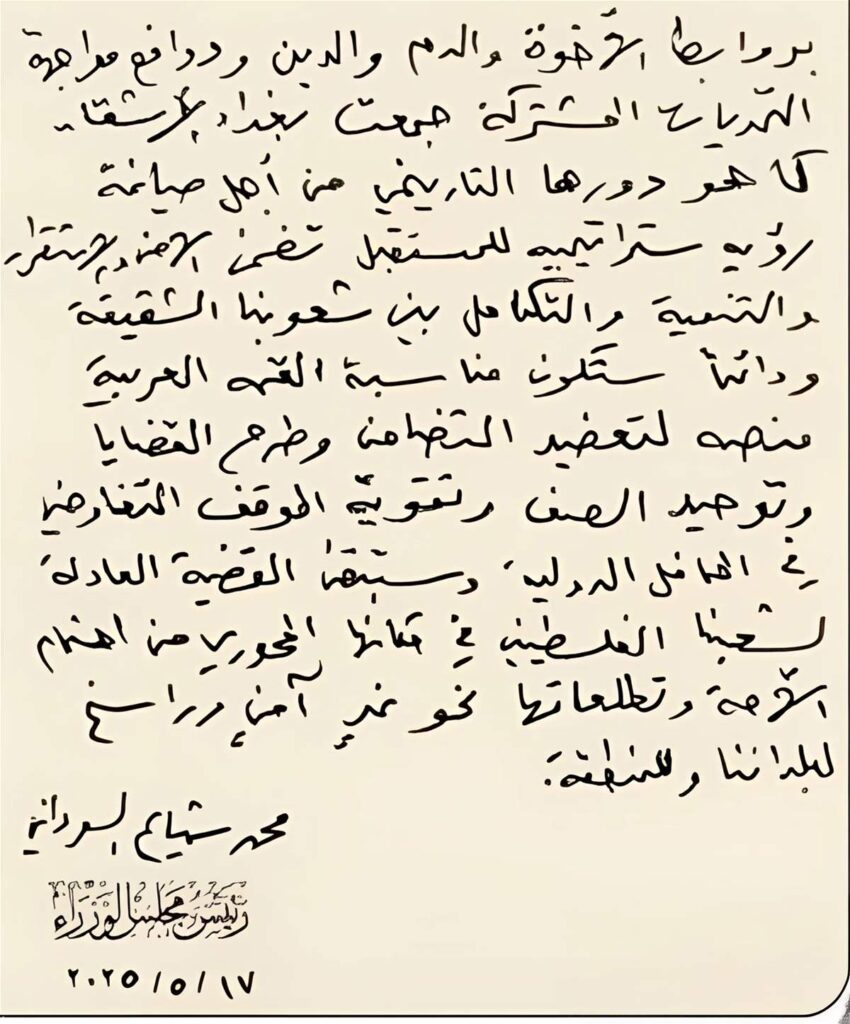 بروابط الأخوة والدم والدين ودوافع مواجهة
التحديات المشتركة جمعت بغداد الأشقاء
كما هو دورها التاريخي من أجل صياغة
رؤيه ستراتيجيه للمستقبل تضمن الأمن والاستقرار
والتنمية والتكامل بين شعوبنا الشقيقة
ودائماً ستكون مناسبة القمه العربية
منصه لتعضيد التضامن وطرح القضايا
وتوحيد الصف وتقوية الموقف التفاوضي
في المحافل الدولية، وستبقى القضية العادلة
لشعبنا الفلسطيني في مكانها المحوري من اهتمام
الأمة وتطلعاتها نحو غدٍ آمنٍ وراسخ
لبلداننا وللمنطقة.
محمد شياع السوداني
رئيس مجلس الوزراء
٢٠٢٥/٥/١٧